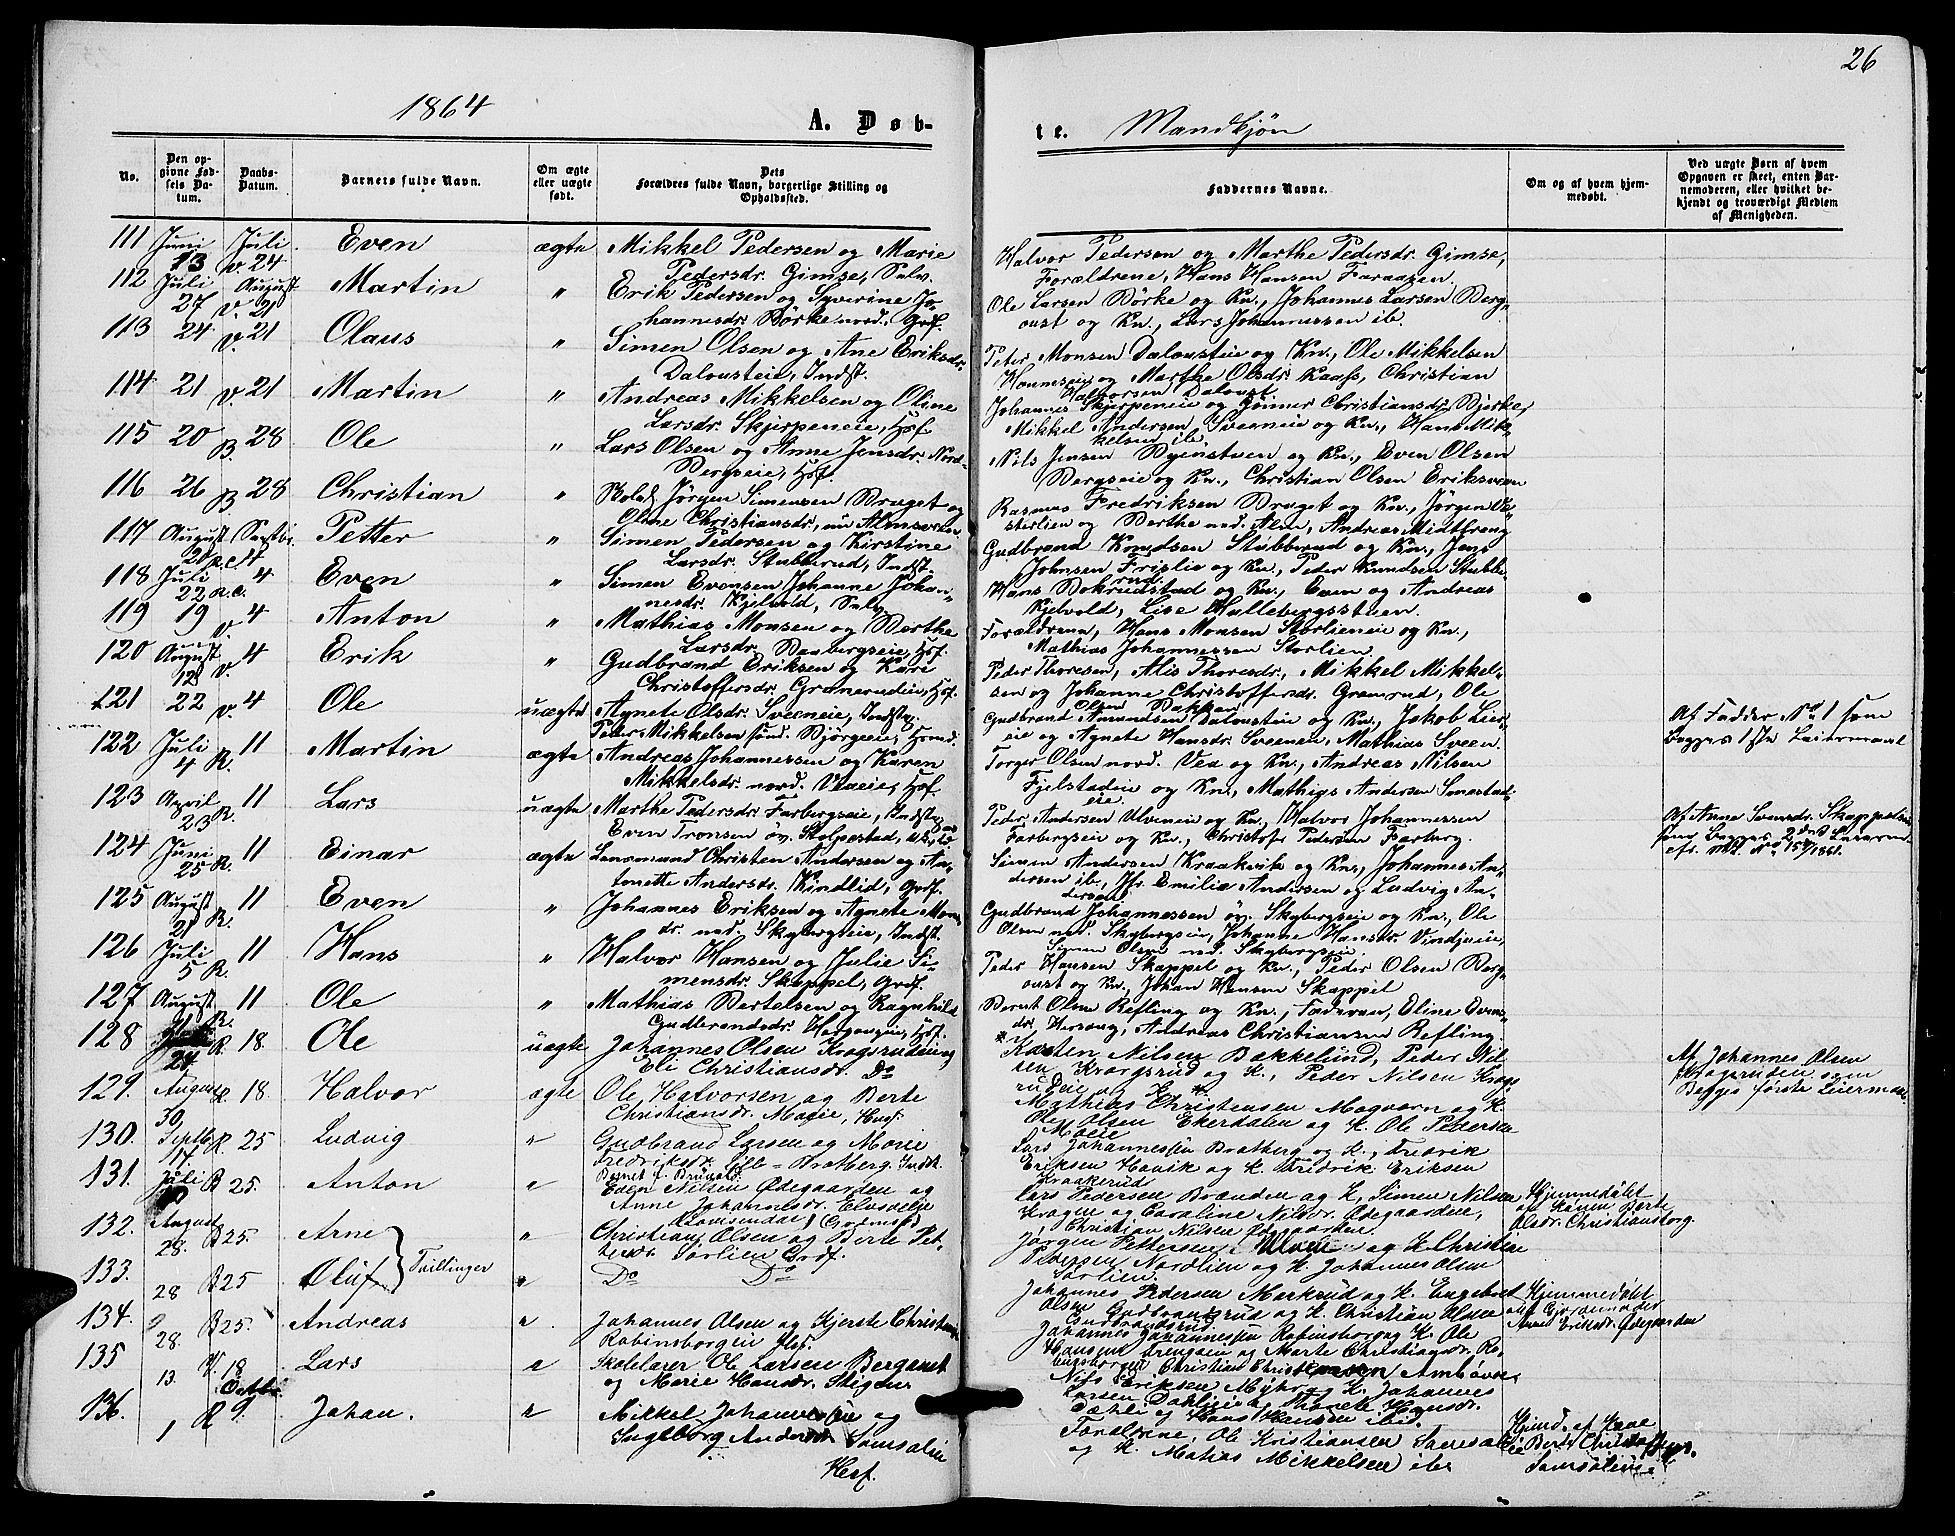 26
1864
A. Døb-
te. Mandkjøn
No.
Den op-
givne Fød-
sels Da-
tum.
Daabs-
Datum.
Barnets fulde Navn.
Om ægte
eller uægte
født.
Dets
Forældres fulde Navn, borgerlige Stilling og
Opholdssted.
Faddernes Navne.
Om og af hvem hjem-
medøbt.
Ved uægte Børn af hvem
Opgaven er skeet, enten Bar-
nemoderen, eller hvilket be-
kjendt og troværdigt Medlem
af Menigheden.
111 Juni 13 Juli v. 24 Even ægte Mikkel Pedersen og Marie
Pedersdr. Gimse, Selv.
Halvor Pedersen og Marthe Pedersdr. Gimse,
Forældrene, Hans Hansen Faraasen.
112 Juli 27 August v. 21 Martin " Erik Pedersen og Syverine Jo-
hannesdr. Børke nord., Grdf.
Ole Larsen Børke og Kn., Johannes Larsen Berg-
oust og Kn., Lars Johannessen ib.
113 24 v. 21 Olaus " Simen Olsen og Ane Eriksdr.
Dalousteie, Indst.
Peter Monsen Dalousteie og Kn., Ole Mikkelsen
og Marthe Olsdr. Kaass, Christian
Halvorsen Daloust
114 21 v. 21 Martin " Andreas Mikkelsen og Oline
Larsdr. Skjerpeneie, Hsf.
Johannes Skjerpeneie og Christiansdr. Bjerke,
Mikkel Andersen Sveeneie og Kn., Hans Mik-
kelsen ib.
115 20 B. 28 Ole " Lars Olsen og Anne Jensdr. Nord-
Bergseie, Hsf.
Nils Jensen Byenstuen og Kn., Even Olsen
Bergseie og Kn., Christian Olsen Eriksveen
116 26 B 28 Christian " Jørgen Simensen Bruget og
Oline Christiansdr.,
Rasmus Fredriksen Bruget og Kn., Jørgen Ve-
sterlien og Berthe ned. Alm, Andreas Midteneng
117 August Septbr. Petter " Simen Pedersen og Kirstine
Larsdr. Stubberud, Indst.
Gudbrand Knudsen Stubberud og Kn., Jens
Johnsen Frislie og Kn., Peder Knudsen Stubbe-
rud.
118 Juli 22 4 Even " Simen Evensen Johanne Johan-
nesdr. Kjelvold, Selv.
Hans Bokrudstad og Kn., Even og Andreas
Kjelvold, Lise Hullebergsstuen.
119 19 v 4 Anton " Mathias Monsen og Berthe
Larsdr. Baabergseie, Hsf.
Forældrene, Hans Monsen Storlieneie og Kn.,
Mathias Johannessen Storlien.
120 August 12 v. 4 Erik " Gudbrand Eriksen og Kari
Christoffersdr. Gramerudeie, Hsf.
Peder Thoresen, Alis Thoresdr., Mikkel Mikkel-
sen og Johanne Christoffersdr. Gramrud, Ole
Olsen Bakken
121 22 v. 4 Ole uægte Agnete Olsdr. Sveeneie, Indstg.
Peder Mikkelsen sønd. Bjørgeeie,
Gudbrand Amundsen Dalousteie og Kn., Jakob Lier-
eie og Agnete Hansdr. Sveenen, Mathias Sveen.
Af Fadder No 1 som
Begges 1ste Leiermaal
122 Juli 4 R. 11 Martin ægte Andreas Johannessen og Karen
Mikkelsdr. nord. Veaeie, Hsf.
Torger Olsen nord. Vea og Kn., Andreas Nilsen
Fjelstadeie og Kn., Mathias Andersen Smestad-
eie.
123 April 23 R. 11 Lars uægte Marthe Pedersdr. Farbergseie, Indstg. og
Even Tronsen øv. Stolpestad,
Peder Andersen Ulveneie og Kn., Halvor Johannessen
Farbergseie og Kn., Christofer Pedersen Farberg.
Af Anna Svensdr. Skappelen
som Begges 2det Leierm.
124 Juni 25 R. 11 Einar ægte Lensmand Christen Andersen og An-
tonette Andersdr. Kindlid, Grdf.
Simen Andersen Kraakvik og Kn., Johannes An-
dersen ib., Jfr. Emilie Andersen og Ludvig An-
dersen
125 August 21 R. 11 Even " Johannes Eriksen og Agnete Mons-
dr. ned. Skybergseie, Indst.
Gudbrand Johannessen øv. Skybergseie og Kn., Ole
Olsen ned. Skybergseie, Johanne Hansdr. Vindjueie,
Simen Olsen ned. Skybergseie.
126 Juli 5 R. 11 Hans " Halvor Hansen og Julie Si-
mensdr. Skappel, Grdf.
Peder Hansen Skappel og Kn., Peder Olsen Berg-
oust og Kn., Johan Hansen Skappel
127 August R. 11 Ole " Mathias Bertelsen og Ragnhild
Gudbrandsdr. Hersougeie, Hsf.
Bernt Olsen Refling og Kn., Faderen, Eline Evens-
dr. Hersoug, Andreas Christiansen Refling.
128 24 R. 18. Ole uægte Johannes Olsen Kragsrudeie og
Eli Christiansdr. Do
Karsten Nilsen Bakkelund, Peder Nil-
sen Kragsrud og K., Peder Nilsen Krags-
rudeie og K.
Af Johannes Olsen
Kragsrudeie som
Begges første Leiermaal
129. August 30 R. 18. Halvor ægte Ole Halvorsen og Berte
Christiansdr. Moeie, Husf.
Mathias Christensen Magvarn og K.
Ole Olsen Ekerdalen og K. Ole Pedersen
Moeie
130. Septbr. 17 R. 25 Ludvig " Gudbrand Larsen og Marie
Fredriksdr. Bratberg. Indst.
Lars Johannessen Bratberg og K., Fredrik
Eriksen Hovik og K. Fredrik Eriksen
Kraakerud
131. Juli B 25. Anton " Even Nilsen Ødegaarden og
Anne Johannesdr.
Lars Pedersen Brænden og K, Simen Nilsen
Kragen og Caroline Nilsdr. Ødegaardeie,
Christian Nilsen Ødegaarden.
Hjemmedøbt
af Konen Berte
Olsdr. Christiansborg.
132. August 28. B 25. Arne " Christian Olsen og Berte Pet-
tersdr. Sørlien Grdf.
Jørgen Pettersen Ulven og K. Christine
Pedersen Nordlien og K. Johannes Olsen
Sørlien.
133. 28 B 25 Oluf } Tvillinger " Do Do
Johannes Pedersen Markrud og K. Engebret
Olsen Gudbrandsrud og K. Christian Olsen
Gudbrandsrud.
Hjemmedøbt
af Gjordemoder
Anne Eriksdr. Ødegaarden
134. 28. B 25. Andreas " Johannes Olsen og Kjerste Christians-
Robinsborgeie Hsf.
Johannes Johannessen Robinsborg og K. Ole
Hansen Evensen og Marte Christiansdr. Ro-
binsborgen
135 13. V. 18 Lars " Skolelærer Ole Larsen Bergaust
og Marie Hansdr. Stigen
Christian Christiansen Ambøven
Nils Eriksen Myhr og K. Johannes
Larsen Dahlieie og Thonete Hansdr.
Dæhli og Hans Hansen ibid.
136. 1 Octbr. R 9. Johan. " Mikkel Johannessen og
Ingeborg Andersdr. Samsalien
Hsf.
Forældrene, Ole Kristiansen Samsalien
og K. Mathias Mikkelsen ibid.
Hjemd. af Kone
Berte Christoffersdr.
Samsalien.